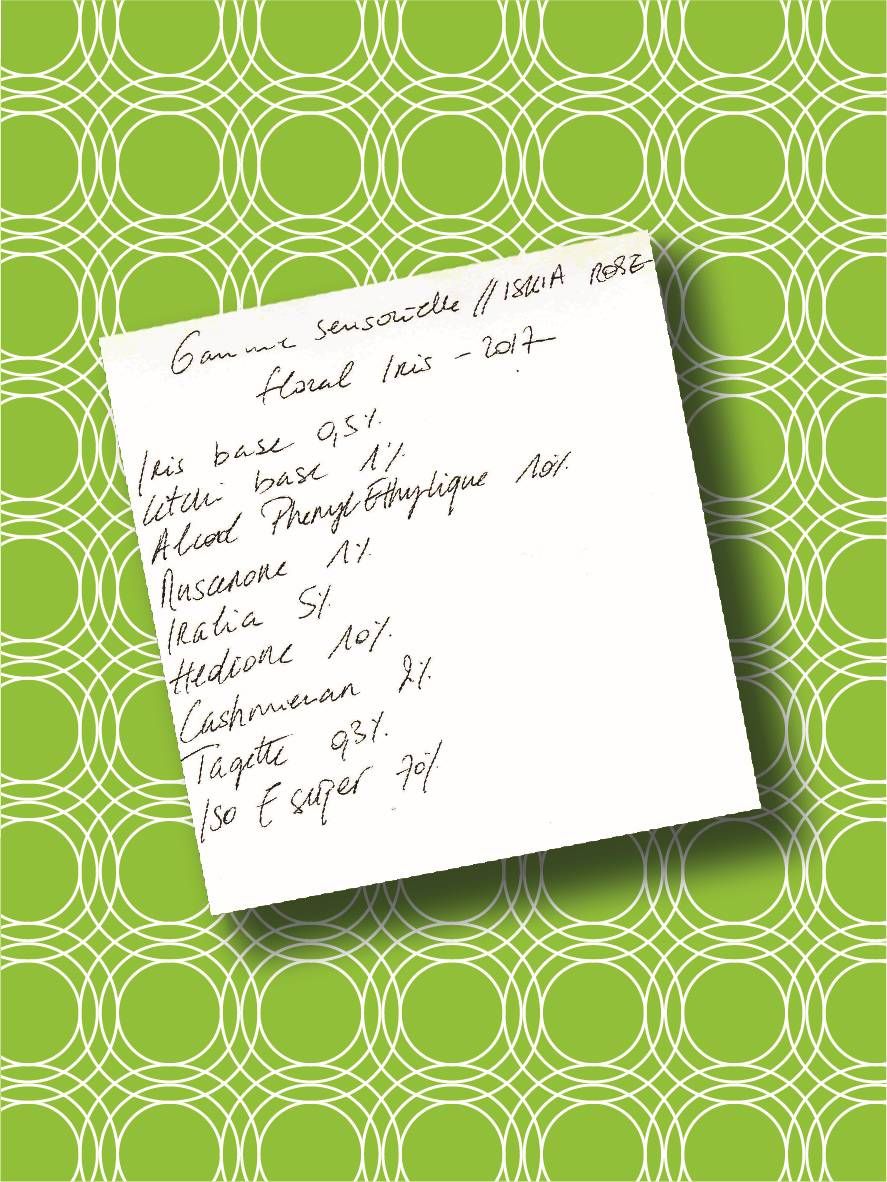 Gamme sensorielle // ISKIA ROSE
floral Iris - 2017
Iris base 0,5%
Letchi base 1%
Alcool Phenyl Ethylique 10%
Muscenone 1%
Iralia 5%
Hedione 10%
Cashmeran 2%
Tagette 0,3%
Iso E super 70%